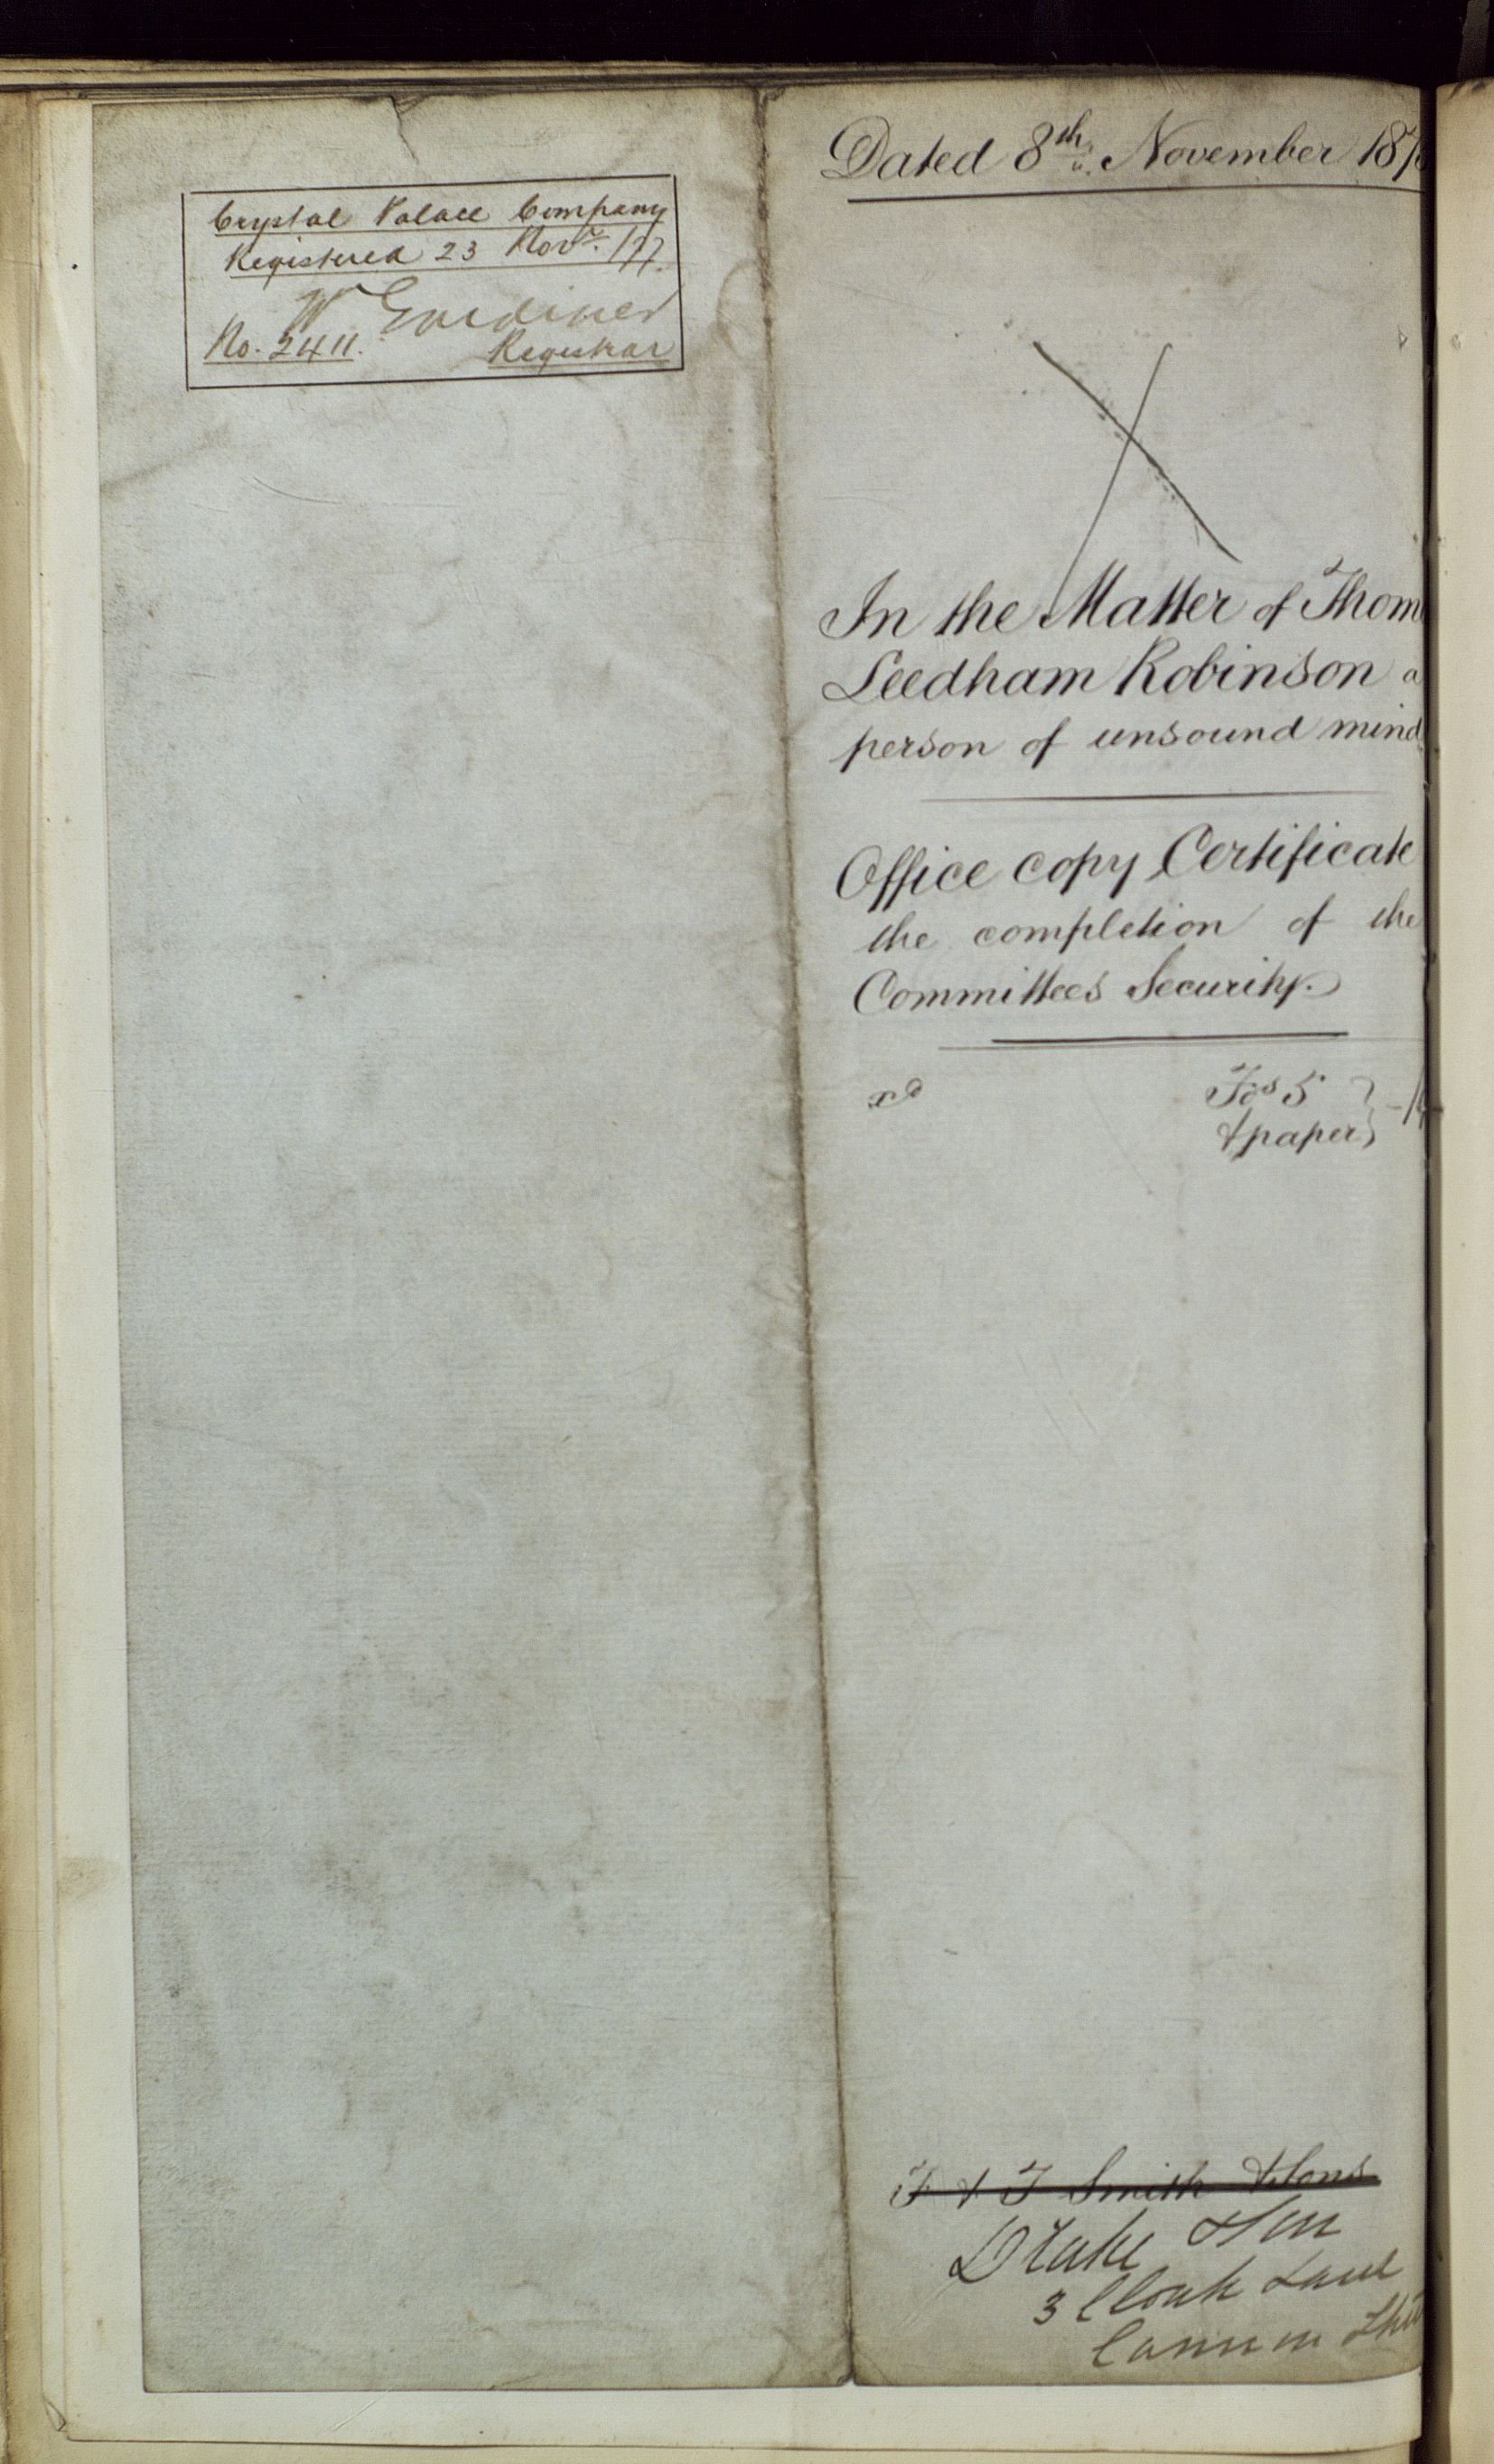 Crystal Palace Company
Registered 23 Novr. /77.
W Gardiner
No. 2411. Registrar
Dated 8th. November 187
In the Matter of Thom
Leedham Robinson a
person of unsound mind
Office copy Certificate
the completion of the
Committees Security.
Fos 5
& paper
F & T Smith & Sons
Drake & Son
3 Cloak Lane
Cannon Stre